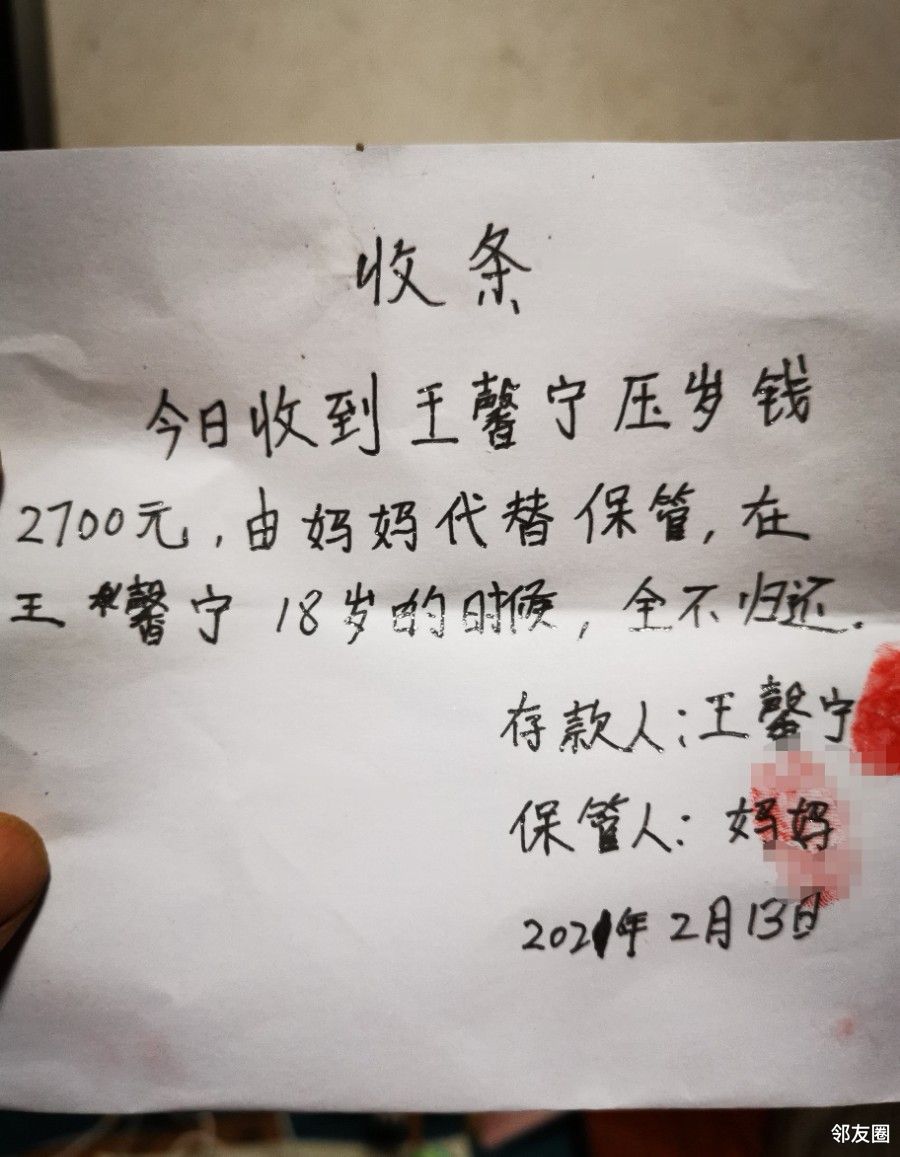 收条
今日收到王馨宁压岁钱
2700元,由妈妈代替保管,在
王馨宁18岁的时候,全不归还.
存款人:王馨宁
保管人:妈妈
2021年2月13日
邻友圈